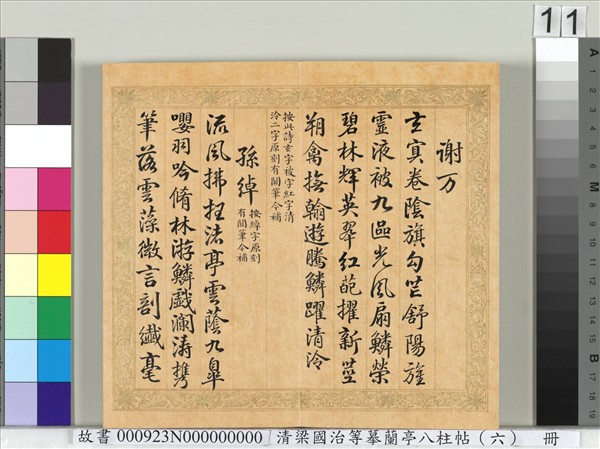 11
謝万
玄冥卷陰旗勾芒舒陽旌
靈液被九區光風扇鱗榮
碧林輝英翠紅葩擢新莖
翔禽撫翰遊騰鱗躍清泠
按此詩玄字被字紅字清
泠二字原刻有闕筆今補
孫綽
按綽字原刻
有闕筆今補
流風拂枉渚亭雲蔭九皋
嚶羽吟脩林游鱗戲瀾濤攜
筆落雲藻微言剖纖毫
故書 000923N000000000 清梁國治等摹蘭亭八柱帖（六） 冊